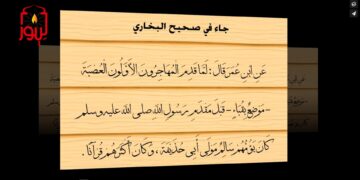 جاء في صحيح البخاري
عَنِ ابْنِ عُمَرَ قَالَ: لَمَّا قَدِمَ الْمُهَاجِرُونَ الْأَوَّلُونَ الْعُصْبَةَ
-مَوْضِعٌ بِقُبَاءٍ- قَبْلَ مَقْدَمِ رَسُولِ اللهِ صلى الله عليه وسلم
كَانَ يَؤُمُّهُمْ سَالِمٌ مَوْلَى أَبِي حُذَيْفَةَ، وَكَانَ أَكْثَرَهُمْ قُرْآنًا.